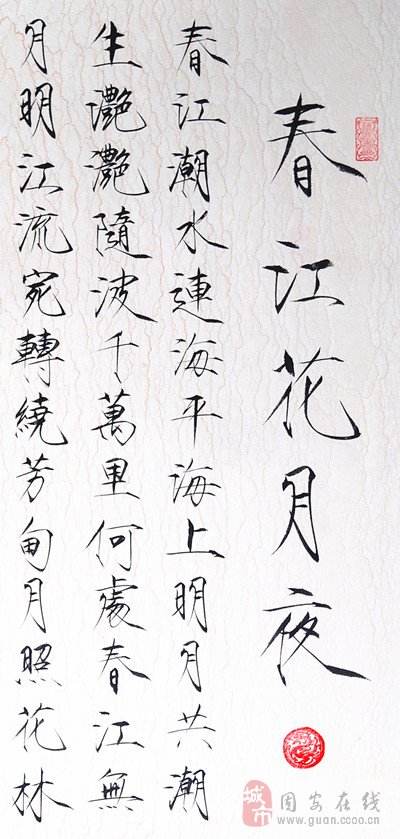 春江花月夜
春江潮水連海平海上明月共潮
生灧灧隨波千萬里何處春江無
月明江流宛轉繞芳甸月照花林
城市 固安在线
www.guan.ccoo.cn